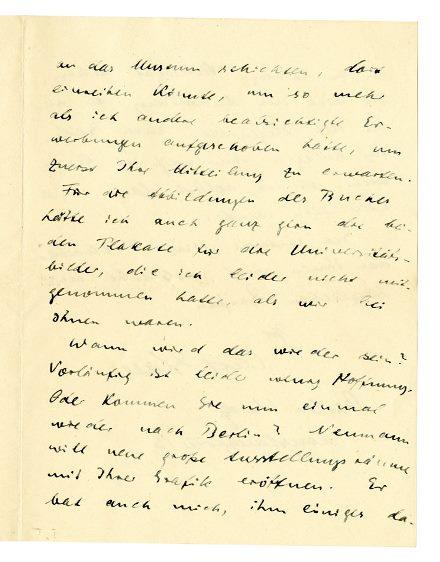 an das Museum schickten, das
einreihen könnte, um so mehr
als ich andere beabsichtigte Er-
werbungen aufgeschoben hatte, um
zuerst Ihre Mitteilung zu erwarten.
Für die Abbildungen des Buches
hätte ich auch ganz gern die bei-
den Plakate für die Universitäts-
bilder, die ich leider nicht mit-
genommen hatte, als wir bei
Ihnen waren.
Wann wird das wieder sein?
Vorläufig ist leider wenig Hoffnung.
Oder kommen Sie nun einmal
wieder nach Berlin? Neumann
will neue große Ausstellungsräume
mit Ihrer Grafik eröffnen. Er
bat auch mich, ihm einiges da-